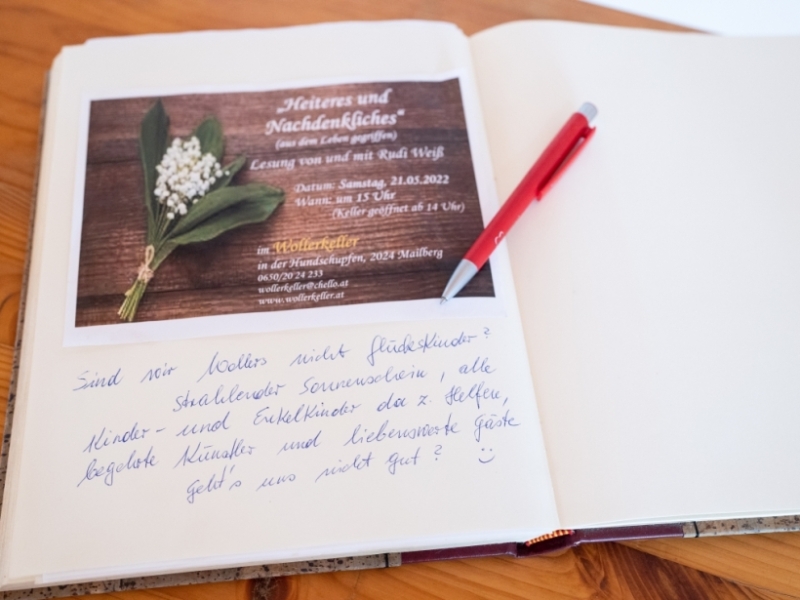 „Heiteres und
Nachdenkliches“
(aus dem Leben gegriffen)
Lesung von und mit Rudi Weiß
Datum: Samstag, 21.05.2022
Wann: um 15 Uhr
(Keller geöffnet ab 14 Uhr)
im Wollerkeller
in der Hundschupfen, 2024 Mailberg
0650/20 24 233
wollerkeller@chello.at
www.wollerkeller.at
Sind wir Wollers nicht Glückskinder?
Strahlender Sonnenschein, alle
Kinder- und Enkelkinder da z. Helfen,
begehrte Künstler und liebenswerte Gäste
Geht's uns nicht gut? :-)